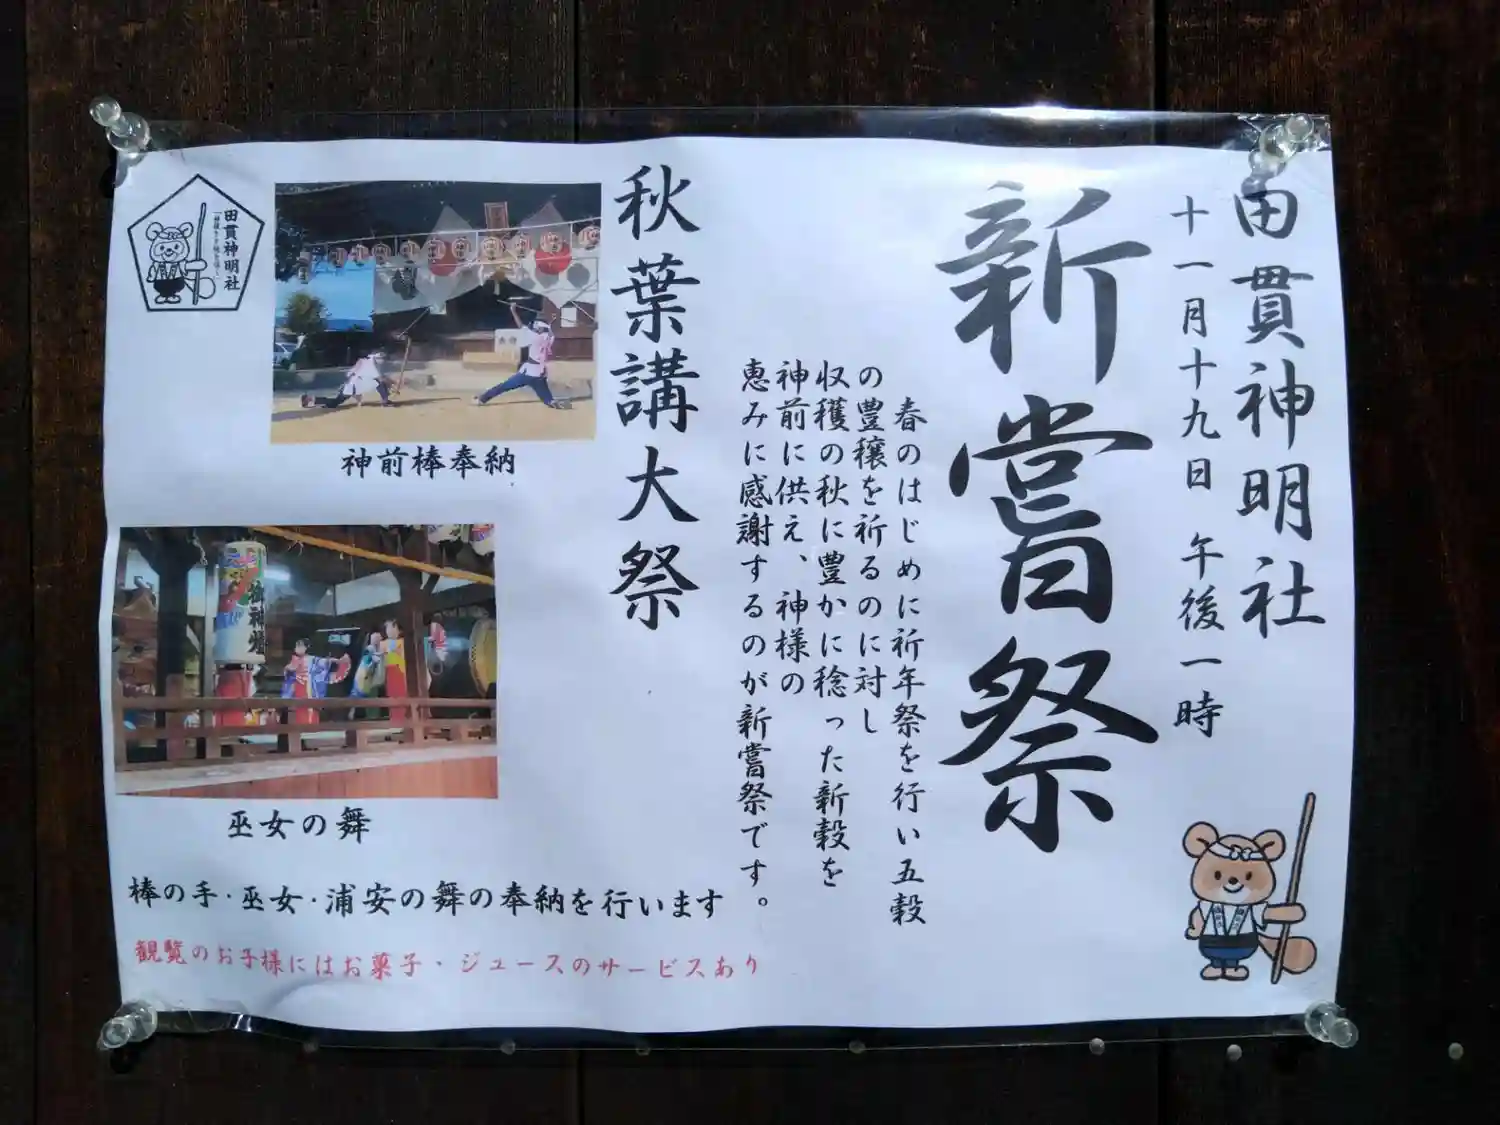 田貫神明社
十一月十九日 午後一時
新嘗祭
春のはじめに祈年祭を行い五穀
の豊穣を祈るのに対し
収穫の秋に豊かに稔った新穀を
神前に供え、神様の
恵みに感謝するのが新嘗祭です。
秋葉講大祭
神前棒奉納
巫女の舞
棒の手・巫女・浦安の舞の奉納を行います
観覧のお子様にはお菓子・ジュースのサービスあり
田貫神明社
御神燈